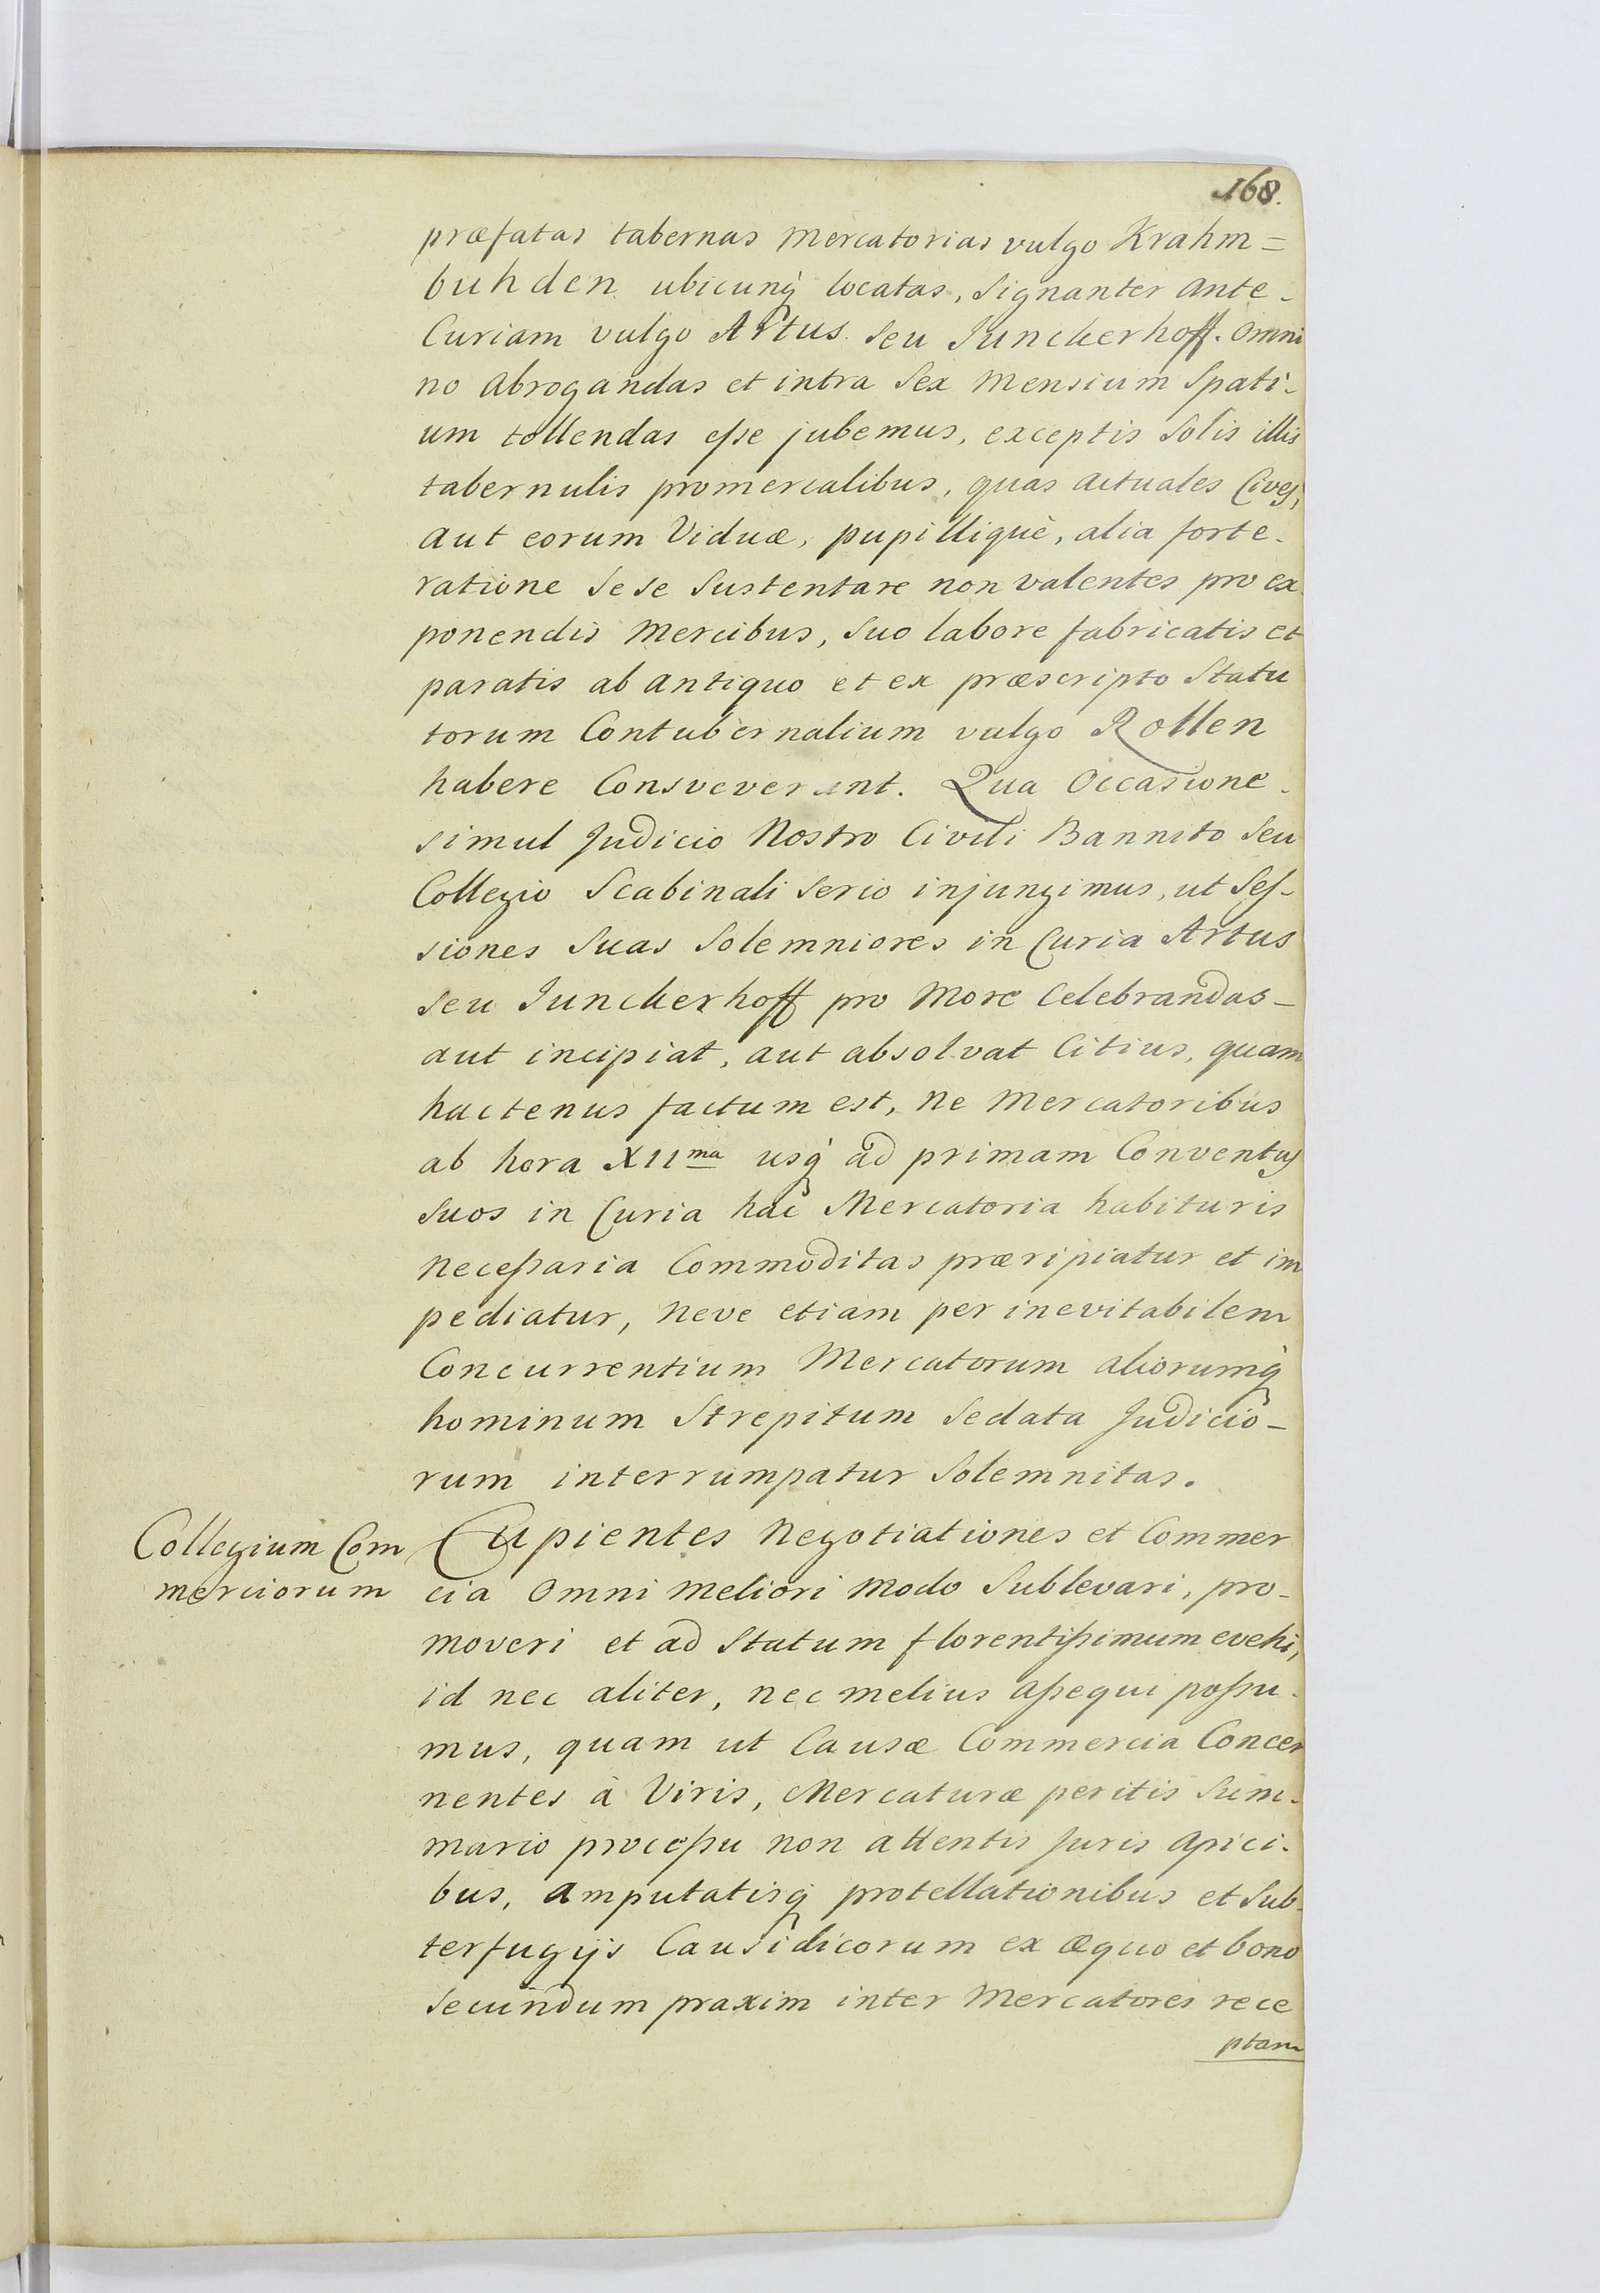 168.
præfatas tabernas Mercatorias vulgo Krahm=
buhden ubicunq́ locatas, Signanter ante-
Curiam vulgo Artus. Seu Junckerhoff. Omni
no abrogandas et intra Sex Mensium Spati-
um tollendas eſse jubemus, exceptis Solis illis
tabernulis promercalibus, quas actuales Cives,
aut eorum Viduæ, pupilliquè, alia forte-
ratione Sese Sustentare non valentes pro ex
ponendis Mercibus, Suo labore fabricatis et
paratis ab antiquo et ex præscripto Statu
torum Contubernalium vulgo Rollen
habere Consveverunt. Qua Occasione-
simul Judicio Nostro Civili Bannito Seu
Collegio Scabinali Serio injungimus, ut Seſ-
siones Suas Solemniores in Curia Artus
Seu Junckerhoff pro More Celebrandas-
aut incipiat, aut absolvat Citius, quam
hactenus factum est, Ne Mercatoribus
ab hora XII ma usq́ ad primam Conventus
Suos in Curia hac Mercatoria habituris
Neceſsaria Commoditas præripiatur et im
pediatur, Neve etiam per inevitabilem
Concurrentium Mercatorum aliorumq́
hominum Strepitum Sedata Judicio-
rum interrumpatur Solemnitas.
Collegium Com
merciorum
Cupientes Negotiationes et Commer
cia Omni Meliori Modo Sublevari, pro-
moveri et ad Statum florentiſsimum evehi,
id nec aliter, nec melius aſsequi poſsu-
mus, quam ut Causæ Commercia Concer
nentes à Viris, Mercaturæ peritis Sum-
mario proceſsu non attentis Juris apici-
bus, amputatisq́ protellationibus et Sub-
terfugijs Causidicorum ex æquo et bono
Secundum praxim inter Mercatores rece
ptam